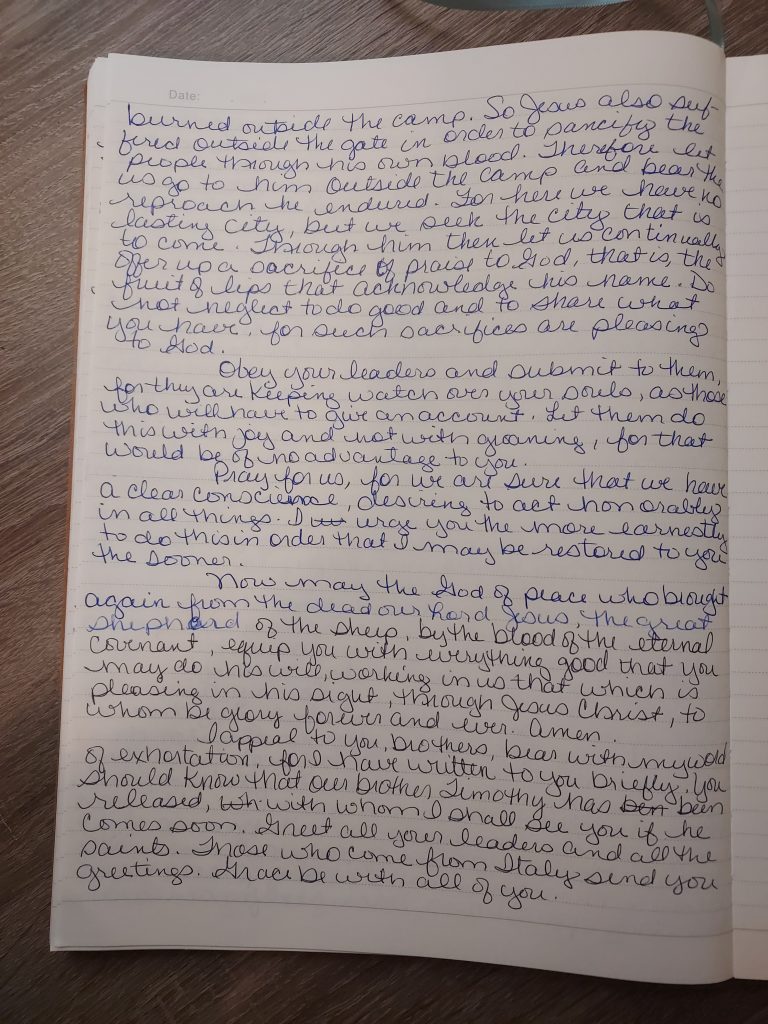 Date:
burned outside the camp. So Jesus also suf-
fered outside the gate in order to sancify the
people through his own blood. Therefore let
us go to him outside the camp and bear the
reproach he endured. For here we have no
lasting city, but we seek the city that is
to come. Through him then let us continually
offer up a sacrifice of praise to God, that is, the
fruit of lips that acknowledge his name. Do
not neglect to do good and to share what
you have, for such sacrifices are pleasing
to God.
Obey your leaders and submit to them,
for they are keeping watch over your souls, as those
who will have to give an account. Let them do
this with joy and not with groaning, for that
would be of no advantage to you.
Pray for us, for we are sure that we have
a clear conscience, desiring to act honorably
in all things. I urge you the more earnestly
to do this in order that I may be restored to you
the sooner.
Now may the God of peace who brought
again from the dead our Lord Jesus, the great
shepherd of the sheep, by the blood of the eternal
covenant, equip you with everything good that you
may do his will, working in us that which is
pleasing in his sight, through Jesus Christ, to
whom be glory forever and ever. Amen.
I appeal to you, brothers, bear with my word
of exhortation, for I have written to you briefly. You
should know that our brother Timothy has ben been
released, wh with whom I shall see you if he
comes soon. Greet all your leaders and all the
saints. Those who come from Italy send you
greetings. Grace be with all of you.